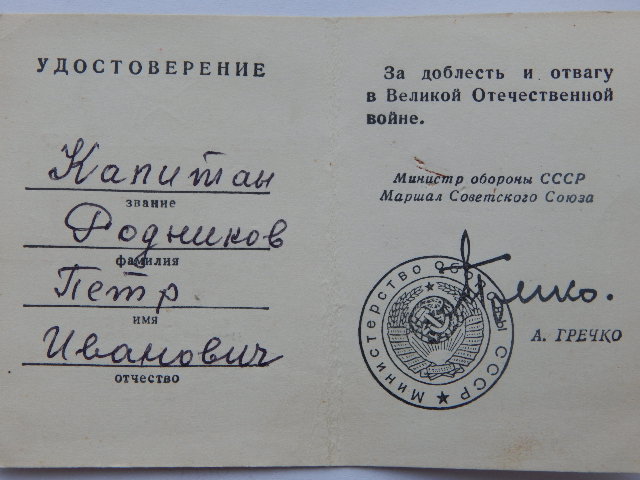 УДОСТОВЕРЕНИЕ
Капитан
звание
Родников
фамилия
Петр
имя
Иванович
отчество
За доблесть и отвагу
в Великой Отечественной
войне.
Министр обороны СССР
Маршал Советского Союза
Гречко.
Министерство Обороны СССР
А. ГРЕЧКО